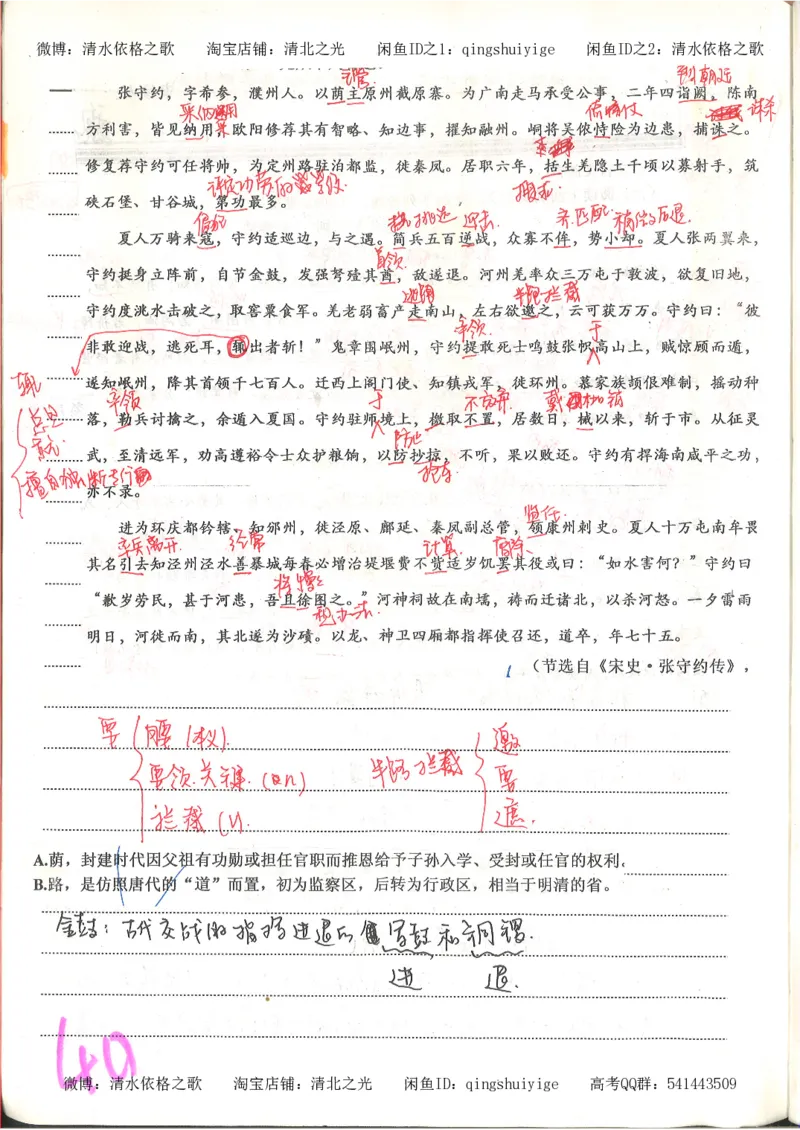 微博：清水依格之歌 淘宝店铺：清北之光 闲鱼ID之1：qingshuiyige 闲鱼ID之2：清水依格之歌
主管 到朝廷
张守约，字希参，濮州人。以荫主原州截原寨。为广南走马承受公事，二年四诣阙，陈南
采纳 依仗 诛杀
方利害，皆见纳用。欧阳修荐其有智略、知边事，擢知融州。峒将吴侬恃险为边患，捕诛之。
修复荐守约可任将帅，为定州路驻泊都监，徙秦凤。居职六年，括生羌隐土千顷以募射手，筑
评定功劳的等级 搜求
硖石堡、甘谷城，第功最多。
侵犯 挑选 迎击 齐，匹配 稍微后退
夏人万骑来寇，守约适巡边，与之遇。简兵五百逆战，众寡不侔，势小却。夏人张两翼来，
首领
守约挺身立阵前，自节金鼓，发强弩殪其酋，敌遂退。河州羌率众三万屯于敦波，欲复旧地，
逃跑 半路拦截
守约度洮水击破之，取窖粟食军。羌老弱畜产走南山，左右欲邀之，云可获万万。守约曰：“彼
率领 于
非敢迎战，逃死耳，辄出者斩！”鬼章围岷州，守约提敢死士鸣鼓张帜高山上，贼惊顾而遁，
辄
遂知岷州，降其首领千七百人。迁西上阁门使、知镇戎军，徙环州。慕家族颉很难制，摇动种
总是
率领 于 不放弃 戴枷锁
落，勒兵讨擒之，余遁入夏国。守约驻师境上，檄取不置，居数日，械以来，斩于市。从征灵
就
防止
武，至清远军，劝高遵裕令士众护粮饷，以防抄掠，不听，果以败还。守约有捍海南咸平之功，
擅自独断专行
抢夺
亦不录。
兼任
进为环庆都钤辖、知邠州，徙泾原、鄜延、秦凤副总管，领康州刺史。夏人十万屯南牟畏
率兵离开 经常 计算 废除
其名引去知泾州泾水善暴城每春必增治堤堰费不赀适岁饥罢其役或曰：“如水害何？”守约曰
将，慢慢
“歉岁劳民，甚于河患，吾且徐图之。”河神祠故在南壖，祷而迁诸北，以杀河怒。一夕雷雨
想办法
明日，河徙而南，其北遂为沙碛。以龙、神卫四厢都指挥使召还，道卒，年七十五。
（节选自《宋史·张守约传》，
要 腰（本义）
要领.关键.（
拦截（
半路拦截 邀
要
遮.
A.荫，封建时代因父祖有功勋或担任官职而推恩给予子孙入学、受封或任官的权利。
B.路，是仿照唐代的“道”而置，初为监察区，后转为行政区，相当于明清的省。
金鼓：古代交战时指挥进退的军鼓和铜锣.
进 退.
40
微博：清水依格之歌 淘宝店铺：清北之光 闲鱼ID：qingshuiyige 高考QQ群：541443509